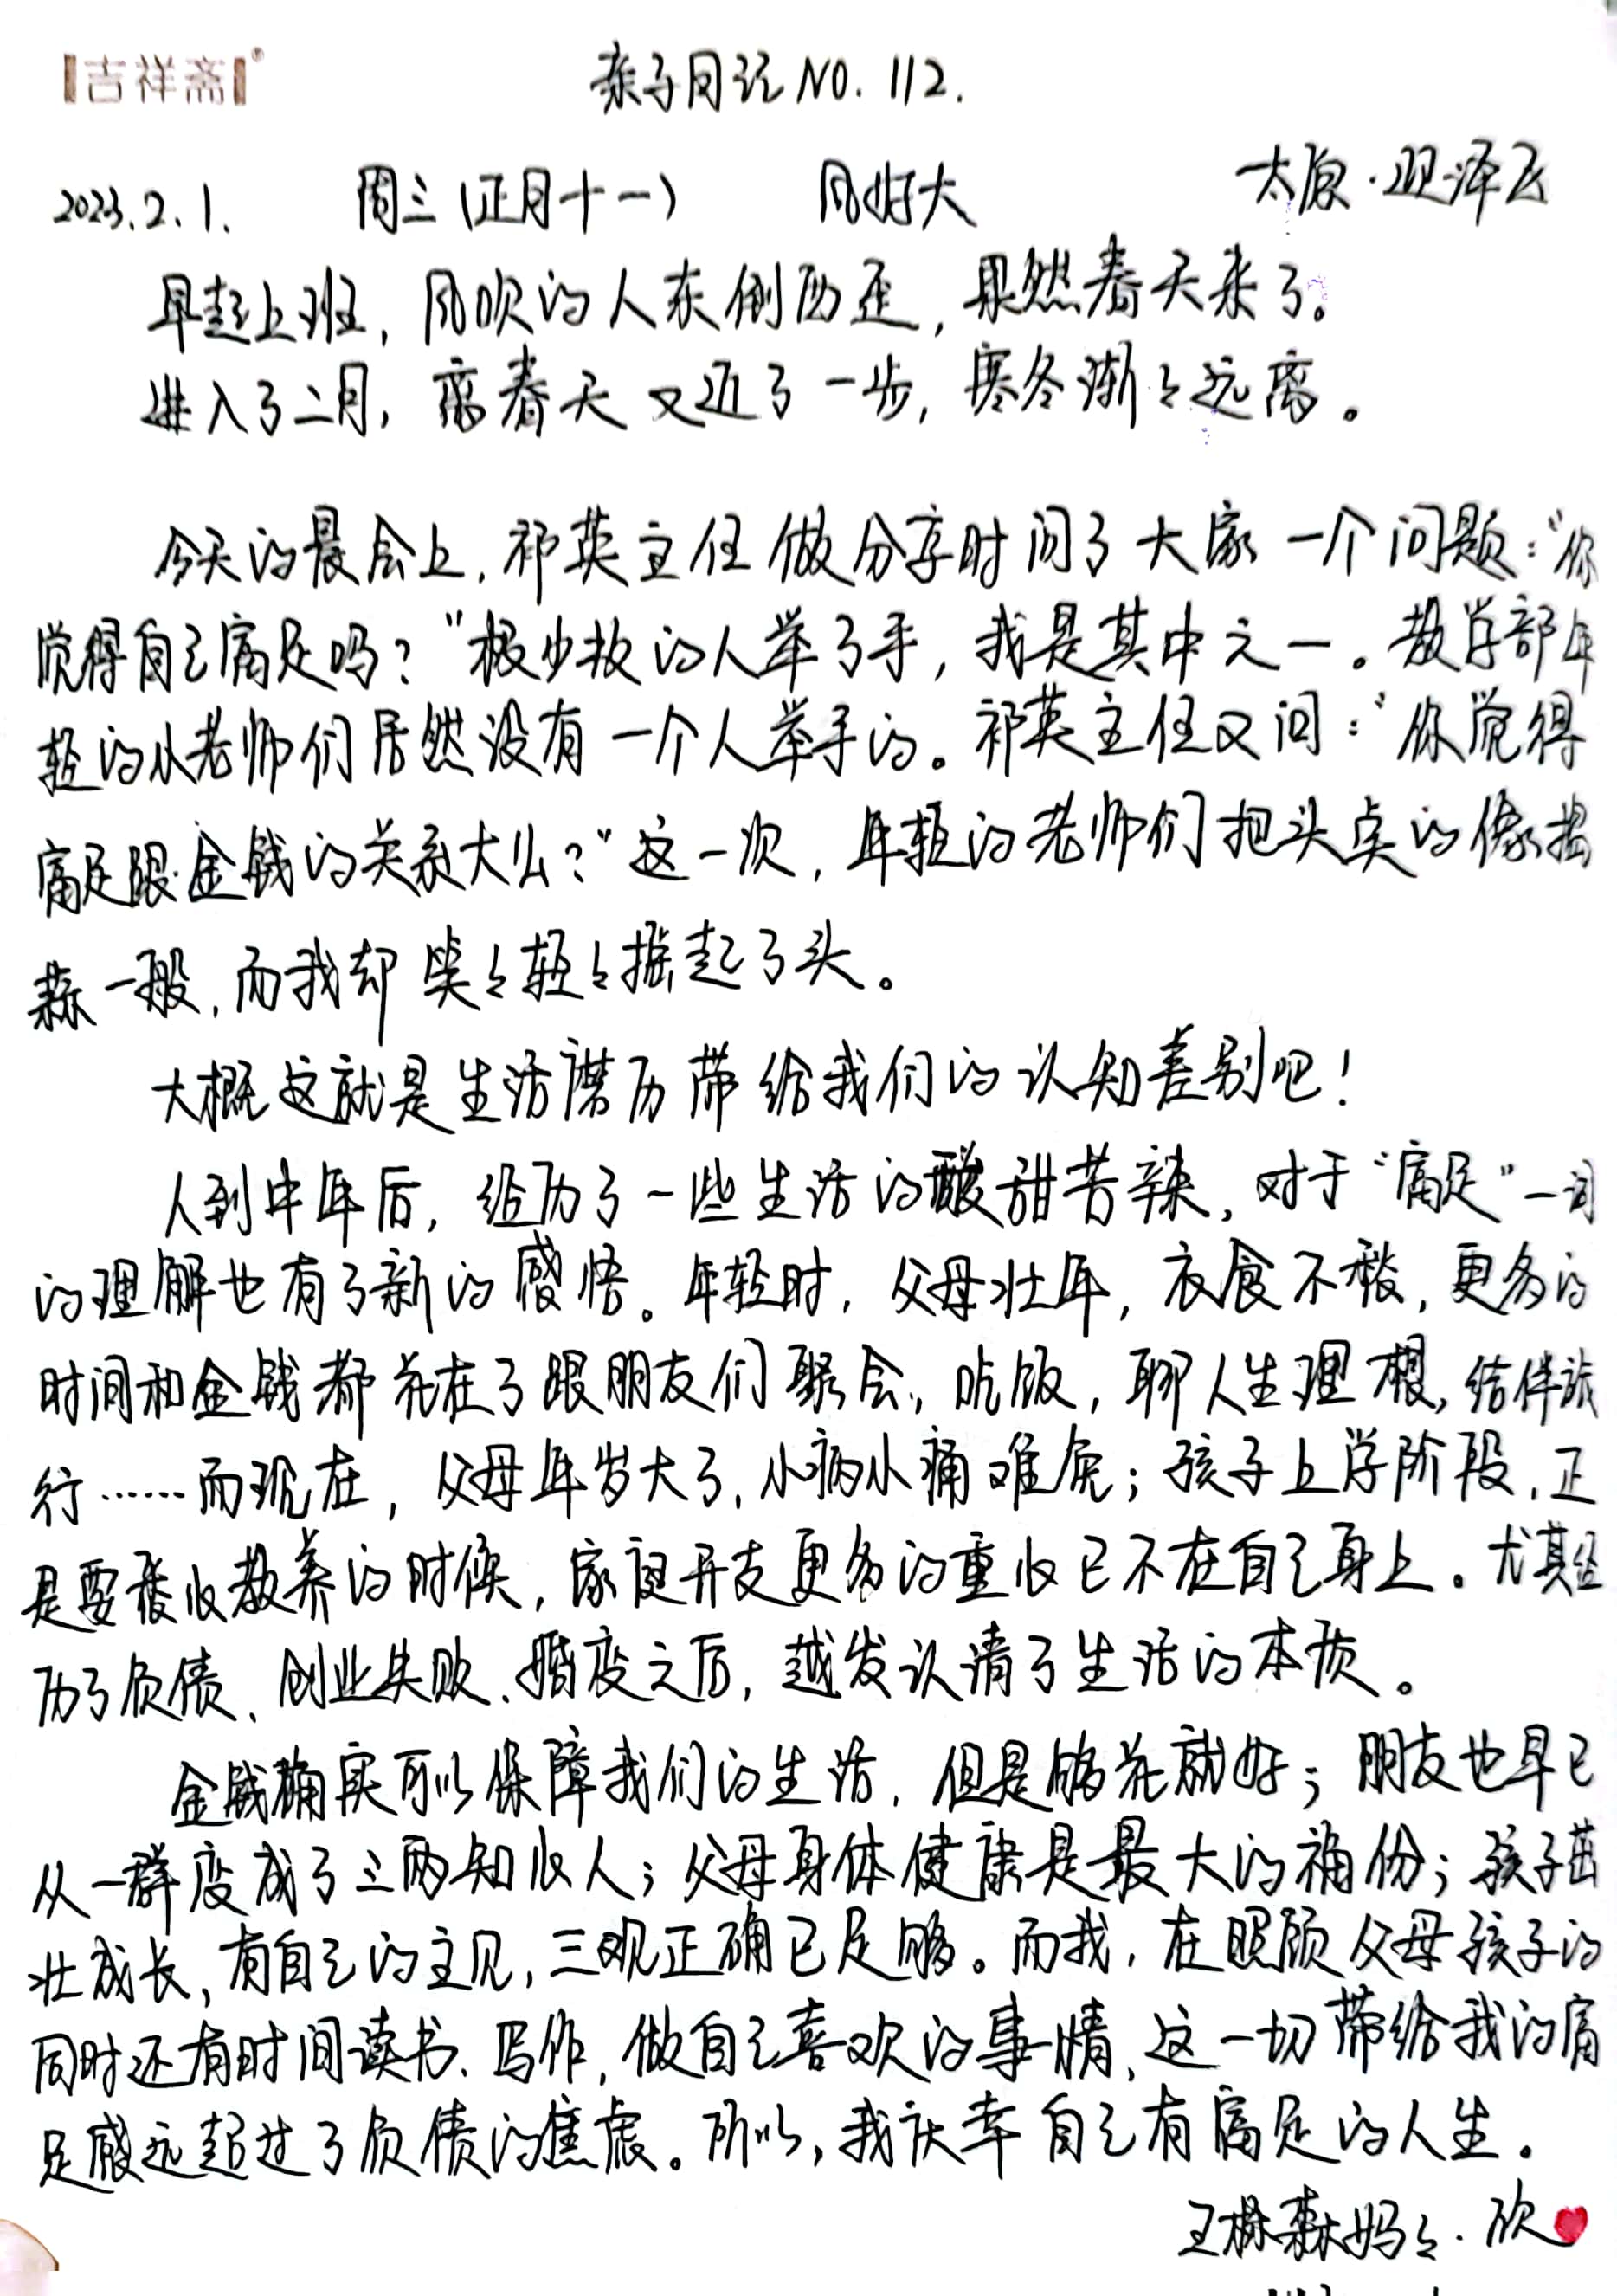 吉祥斋
亲子日记 NO. 112.
2023.2.1. 周三(正月十一) 风好大 太原·观泽云
早起上班,风吹的人东倒西歪,果然春天来了。
进入了二月,离春天又近了一步,寒冬渐々远离。
今天的晨会上,祁英主任做分享时问了大家一个问题:“你
觉得自己富足吗?”极少数的人举了手,我是其中之一。教学部年
轻的小老师们居然没有一个人举手的。祁英主任又问:“你觉得
富足跟金钱的关系大么?”这一次,年轻的老师们把头点的像捣
蒜一般,而我却笑々轻々摇起了头。
大概这就是生活磨历带给我们的认知差别吧!
人到中年后,经历了一些生活的酸甜苦辣,对于“富足”一词
的理解也有了新的感悟。年轻时,父母壮年,衣食不愁,更多的
时间和金钱都花在了跟朋友们聚会,吃饭,聊人生理想,结伴旅
行……而现在,父母年岁大了,小病小痛难免;孩子上学阶段,正
是要费心教养的时候,家庭开支更多的重心已不在自己身上。尤其经
历了负债、创业失败、婚变之后,越发认清了生活的本质。
金钱确实可以保障我们的生活,但是够花就好;朋友也早已
从一群变成了三两知心人;父母身体健康是最大的福份;孩子茁
壮成长,有自己的主见,三观正确已足够。而我,在照顾父母孩子的
同时还有时间读书、写作,做自己喜欢的事情,这一切带给我的富
足感远超过了负债的焦虑。所以,我庆幸自己有富足的人生。
王梓森妈々·欣